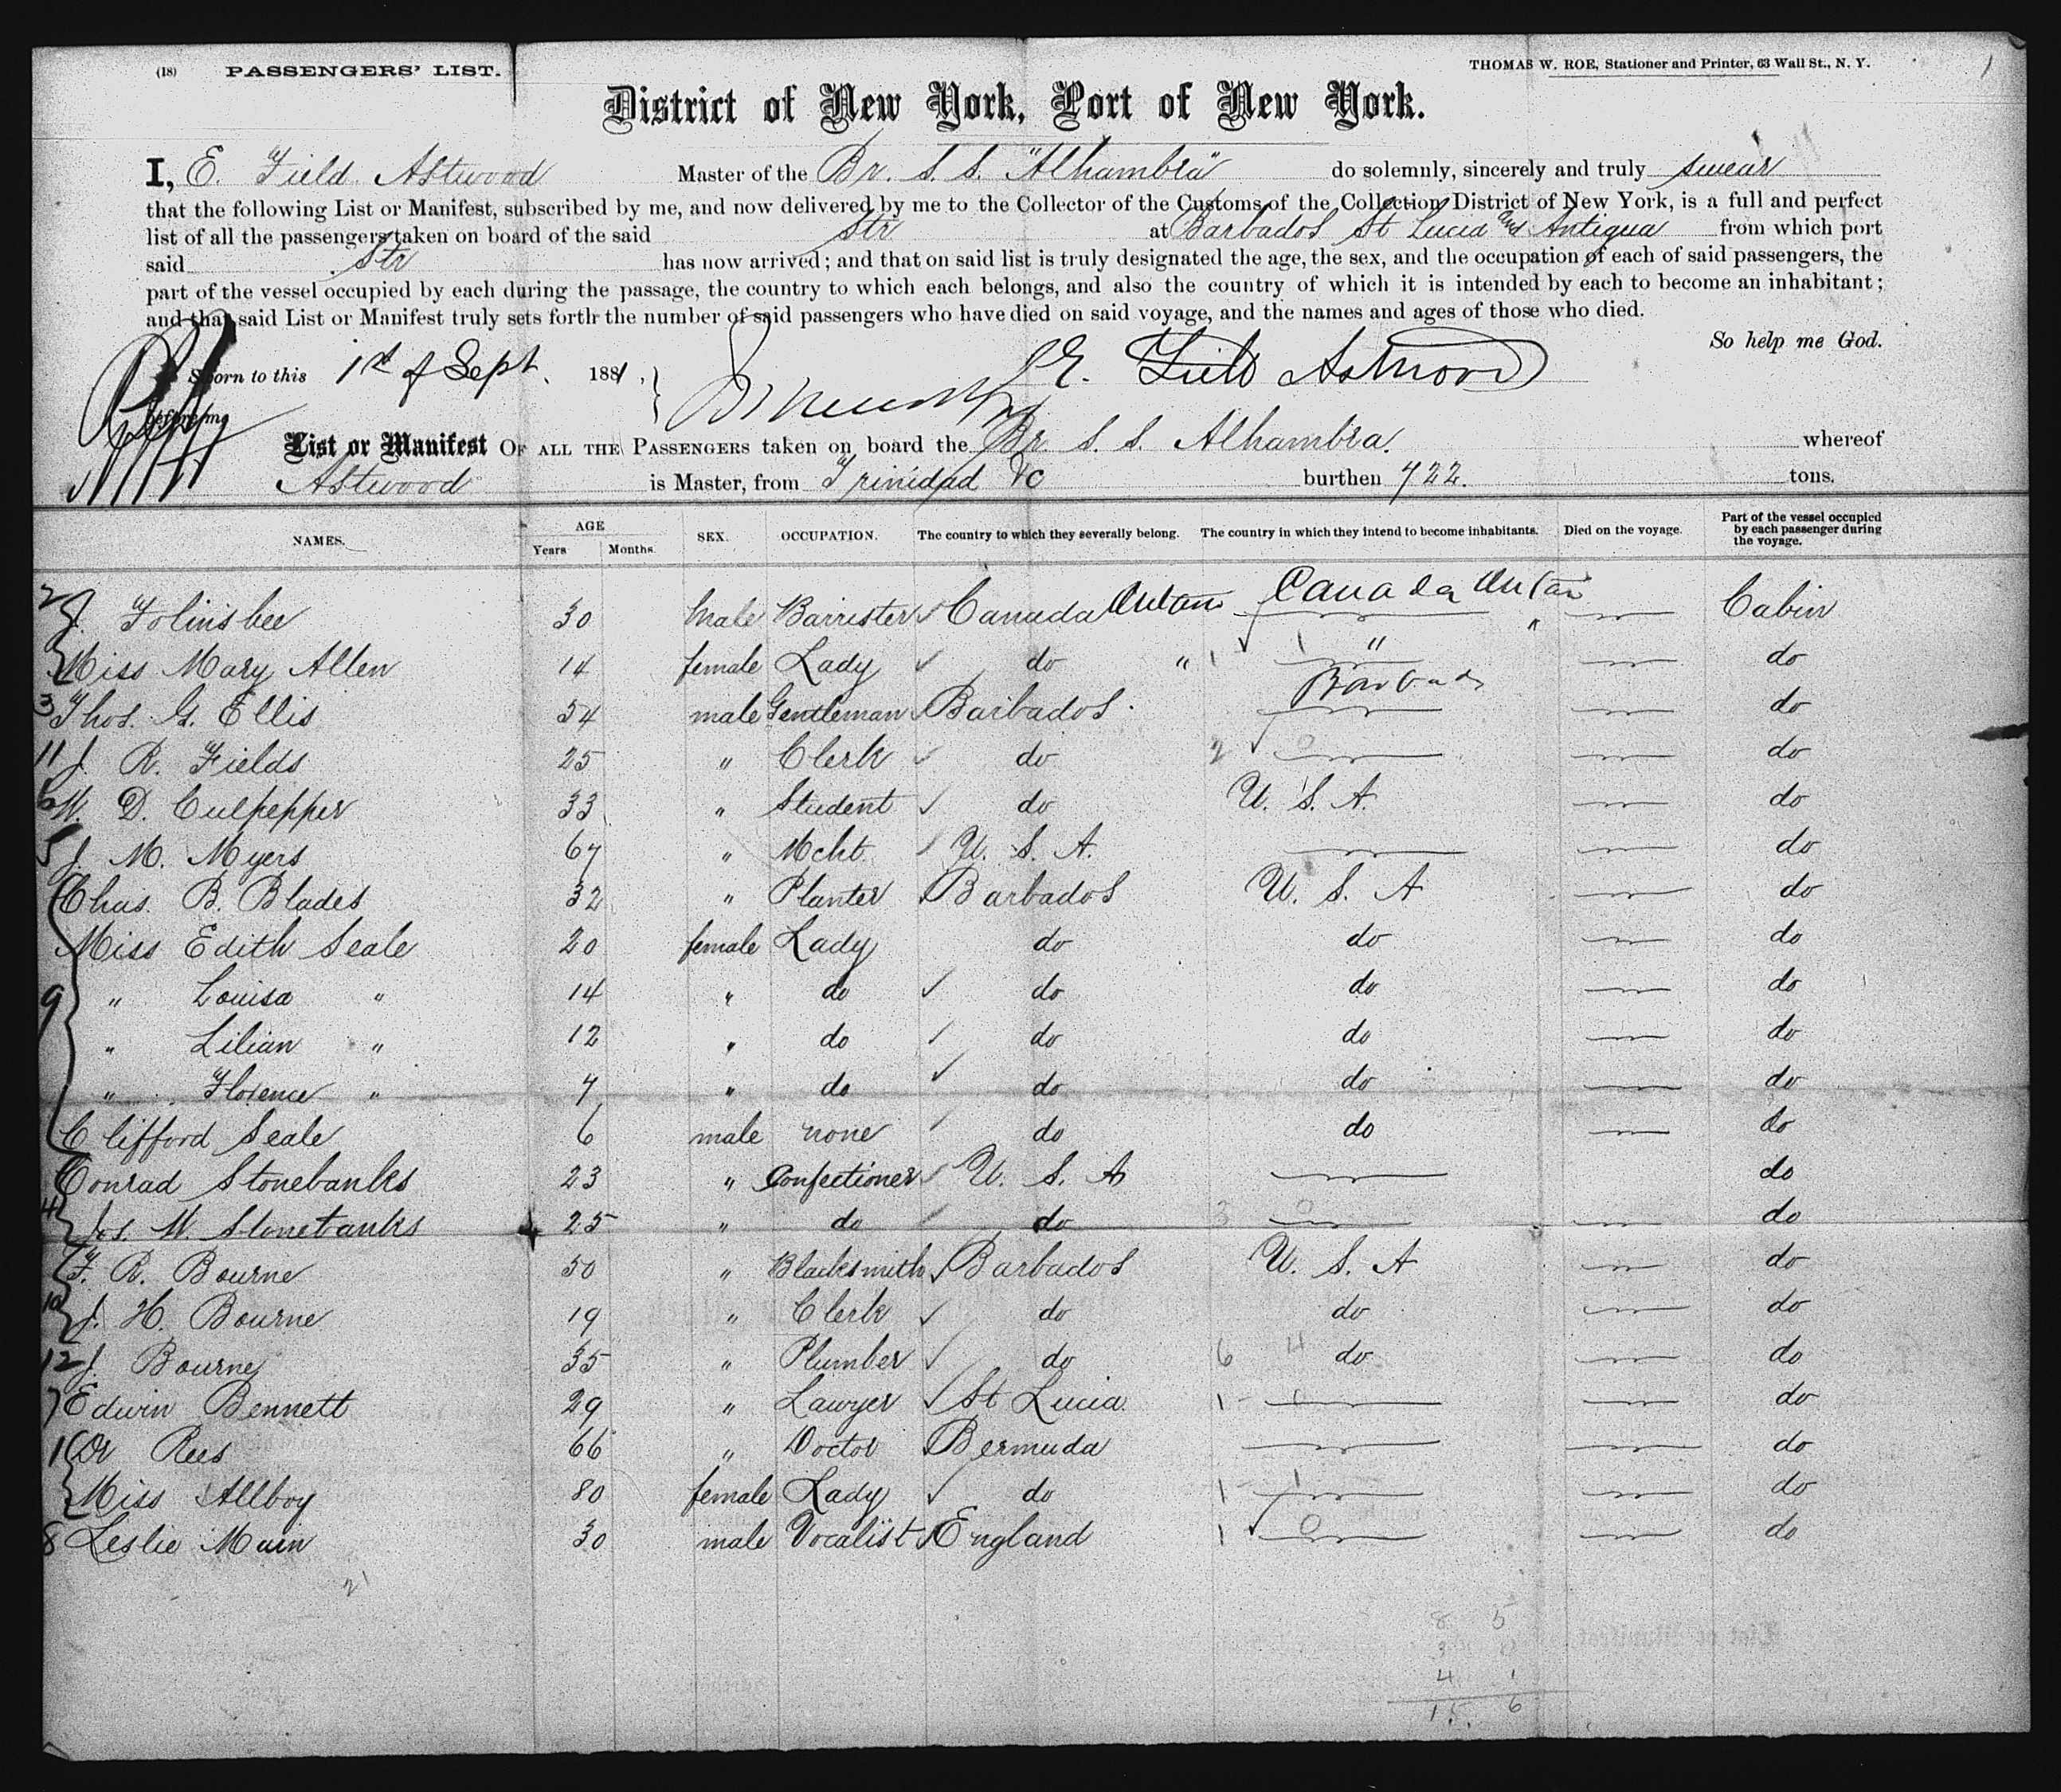 (18) PASSENGERS' LIST. THOMAS W. ROE, Stationer and Printer, 63 Wall St., N. Y.
District of New York, Port of New York.
I, E. Field Astwood Master of the Br. S. S. "Alhambra" do solemnly, sincerely and truly swear
that the following List or Manifest, subscribed by me, and now delivered by me to the Collector of the Customs of the Collection District of New York, is a full and perfect
list of all the passengers taken on board of the said Str at Barbados St Lucia and Antigua from which port
said Str has now arrived; and that on said list is truly designated the age, the sex, and the occupation of each of said passengers, the
part of the vessel occupied by each during the passage, the country to which each belongs, and also the country of which it is intended by each to become an inhabitant;
and that said List or Manifest truly sets forth the number of said passengers who have died on said voyage, and the names and ages of those who died.
So help me God.
Sworn to this 1st of Sept. 1881, E. Field Astwood
before me
List or Manifest OF ALL THE PASSENGERS taken on board the Br. S. S. Alhambra. whereof
Astwood is Master, from Trinidad &c burthen 722. tons.
NAMES. AGE Years Months. SEX. OCCUPATION. The country to which they severally belong. The country in which they intend to become inhabitants. Died on the voyage. Part of the vessel occupied by each passenger during the voyage.
2 J. Folinsbee 30 Male Barrister Canada Canada Cabin
Miss Mary Allen 14 female Lady do " 1 1 " do
3 Thos. G. Ellis 54 male Gentleman Barbados Barbados do
11 J. R. Fields 25 " Clerk do 2 0 do
6 W. D. Culpepper 33 " Student do U. S. A. do
5 J. M. Myers 67 " Mcht U. S. A. do
Chas. B. Blades 32 " Planter Barbados U. S. A do
Miss Edith Seale 20 female Lady do do do
9 " Louisa " 14 " do do do do
" Lilian " 12 " do do do do
" Florence " 7 " do do do do
Clifford Seale 6 male none do do do
Conrad Stonebanks 23 " Confectioner U. S. A do
4 Jos. W. Stonebanks 25 " do do 3 0 do
F. R. Bourne 50 " Blacksmith Barbados U. S. A do
10 J. H. Bourne 19 " Clerk do do do
12 J. Bourne 35 " Plumber do 6 4 do do
7 Edwin Bennett 29 " Lawyer St Lucia 1 0 do
1 Dr Rees 66 " Doctor Bermuda do
Miss Allboy 80 female Lady do 1 1 do
8 Leslie Main 30 male Vocalist England 1 0 do
21
8 5
3
4 1
15. 6